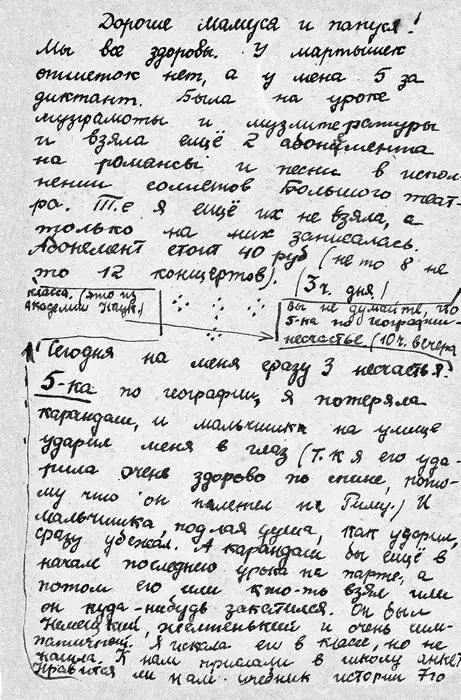 Дорогие Мамуся и папуся!
Мы все здоровы. У мартышек
отметок нет, а у меня 5 за
диктант. Была на уроке
музграмоты и музлитературы
и взяла ещё 2 абонемента
на романсы и песни в испол-
нении солистов Большого теат-
ра. Т.е я ещё их не взяла, а
только на них записалась.
Абонемент стоит 40 руб (не то 8 не
то 12 концертов). (3 ч. дня!
класса. (это из
Академии Наук.)
Вы не думайте, что
5-ка по географии-
несчастье. (10 ч. вечера
Сегодня на меня сразу 3 несчастья.
5-ка по географии, я потеряла
карандаш, и мальчишка на улице
ударил меня в глаз (т.к я его уда-
рила очень здорово по спине, пото-
му что он налетел на Риму.) И
мальчишка, подлая душа, как ударил,
сразу убежал. А карандаш был ещё в
начале последнего урока на парте, а
потом его или кто-то взял или
он куда-нибудь закатился. Он был
немецкий, желтенький и очень сим-
патичный. Я искала его в классе, но не
нашла. К нам прислали в школу анкету
Нравится ли нам учебник истории 7го